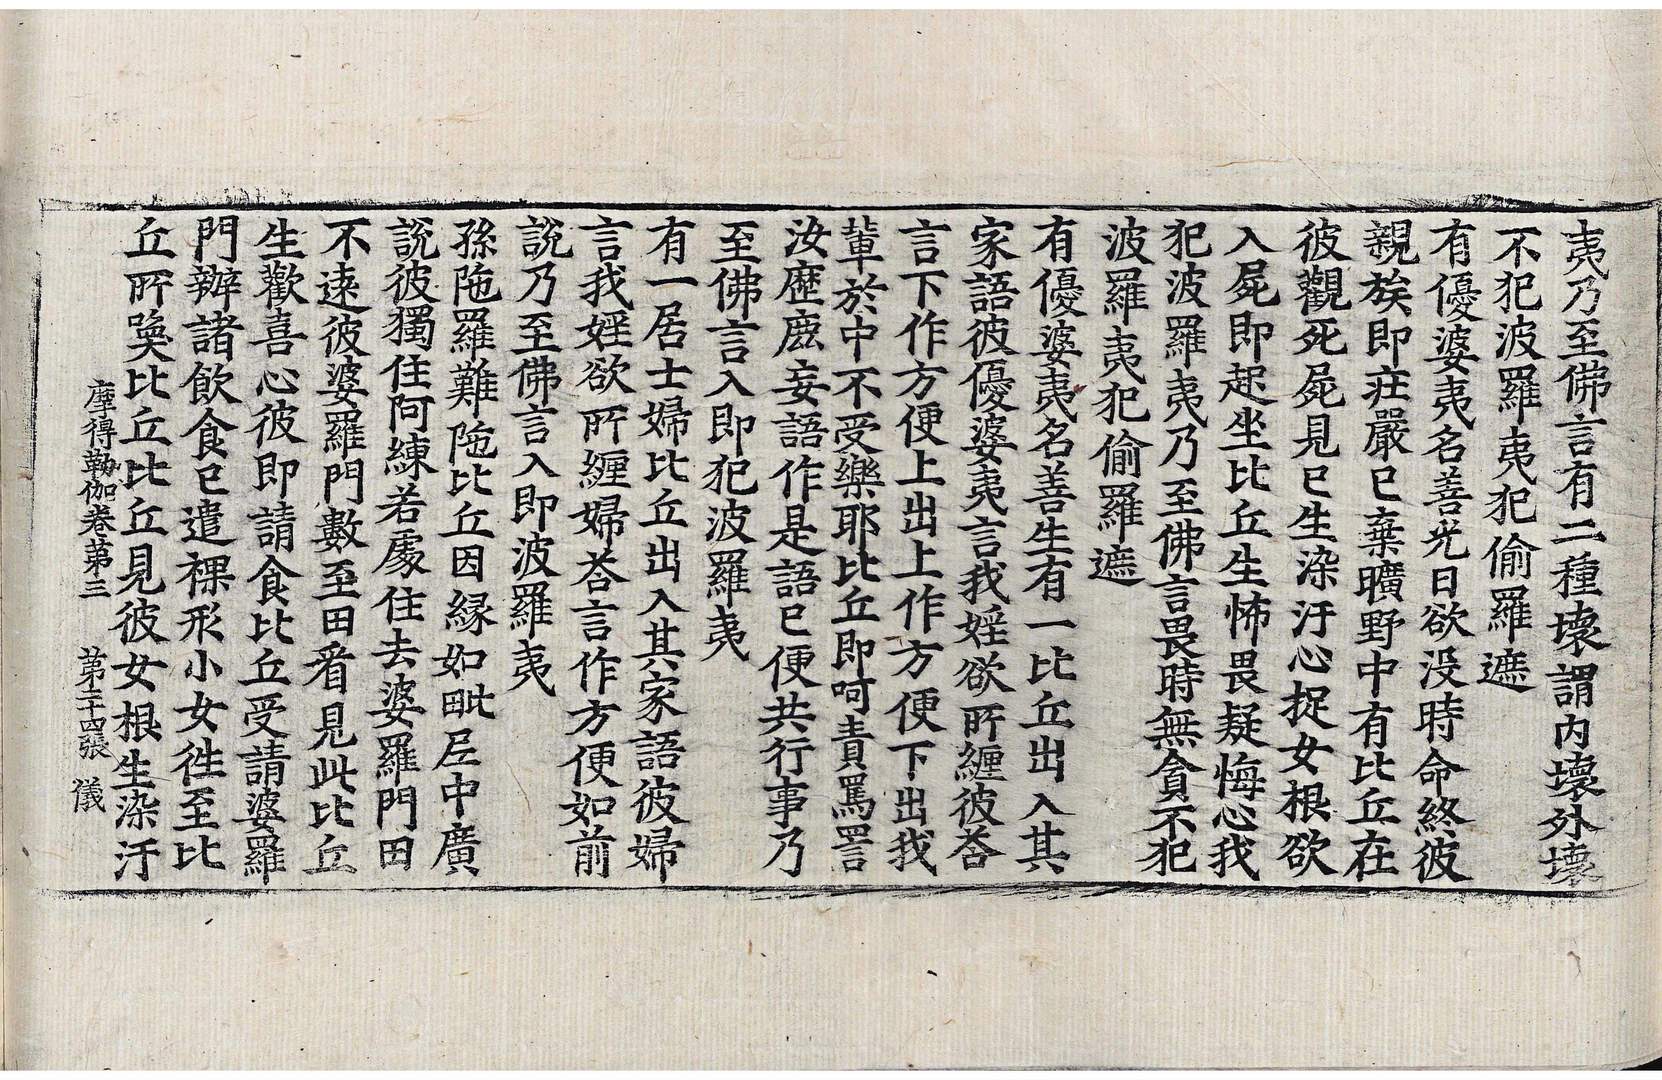 夷乃至佛言有二種壞謂內壞外壞
不犯波羅夷犯偷羅遮
有優婆夷名善光日欲没時命終彼
親族即莊嚴已棄曠野中有比丘在
彼觀死屍見已生染汙心捉女根欲
入屍即起坐比丘生怖畏疑悔心我
犯波羅夷乃至佛言畏時無貪不犯
波羅夷犯偷羅遮
有優婆夷名善生有一比丘出入其
家語彼優婆夷言我婬欲所纏彼荅
言下作方便上出上作方便下出我
輩於中不受樂耶比丘即呵責罵詈
汝歷鹿妄語作是語已便共行事乃
至佛言入即犯波羅夷
有一居士婦比丘出入其家語彼婦
言我婬欲所纏婦荅言作方便如前
說乃至佛言入即波羅夷
孫陁羅難陁比丘因緣如毗尼中廣
說彼獨住阿練若處住去婆羅門田
不遠彼婆羅門數至田看見此比丘
生歡喜心彼即請食比丘受請婆羅
門辦諸飲食已遣裸形小女徃至比
丘所喚比丘比丘見彼女根生染汙
摩得勒伽卷第三 第二十四張 儀